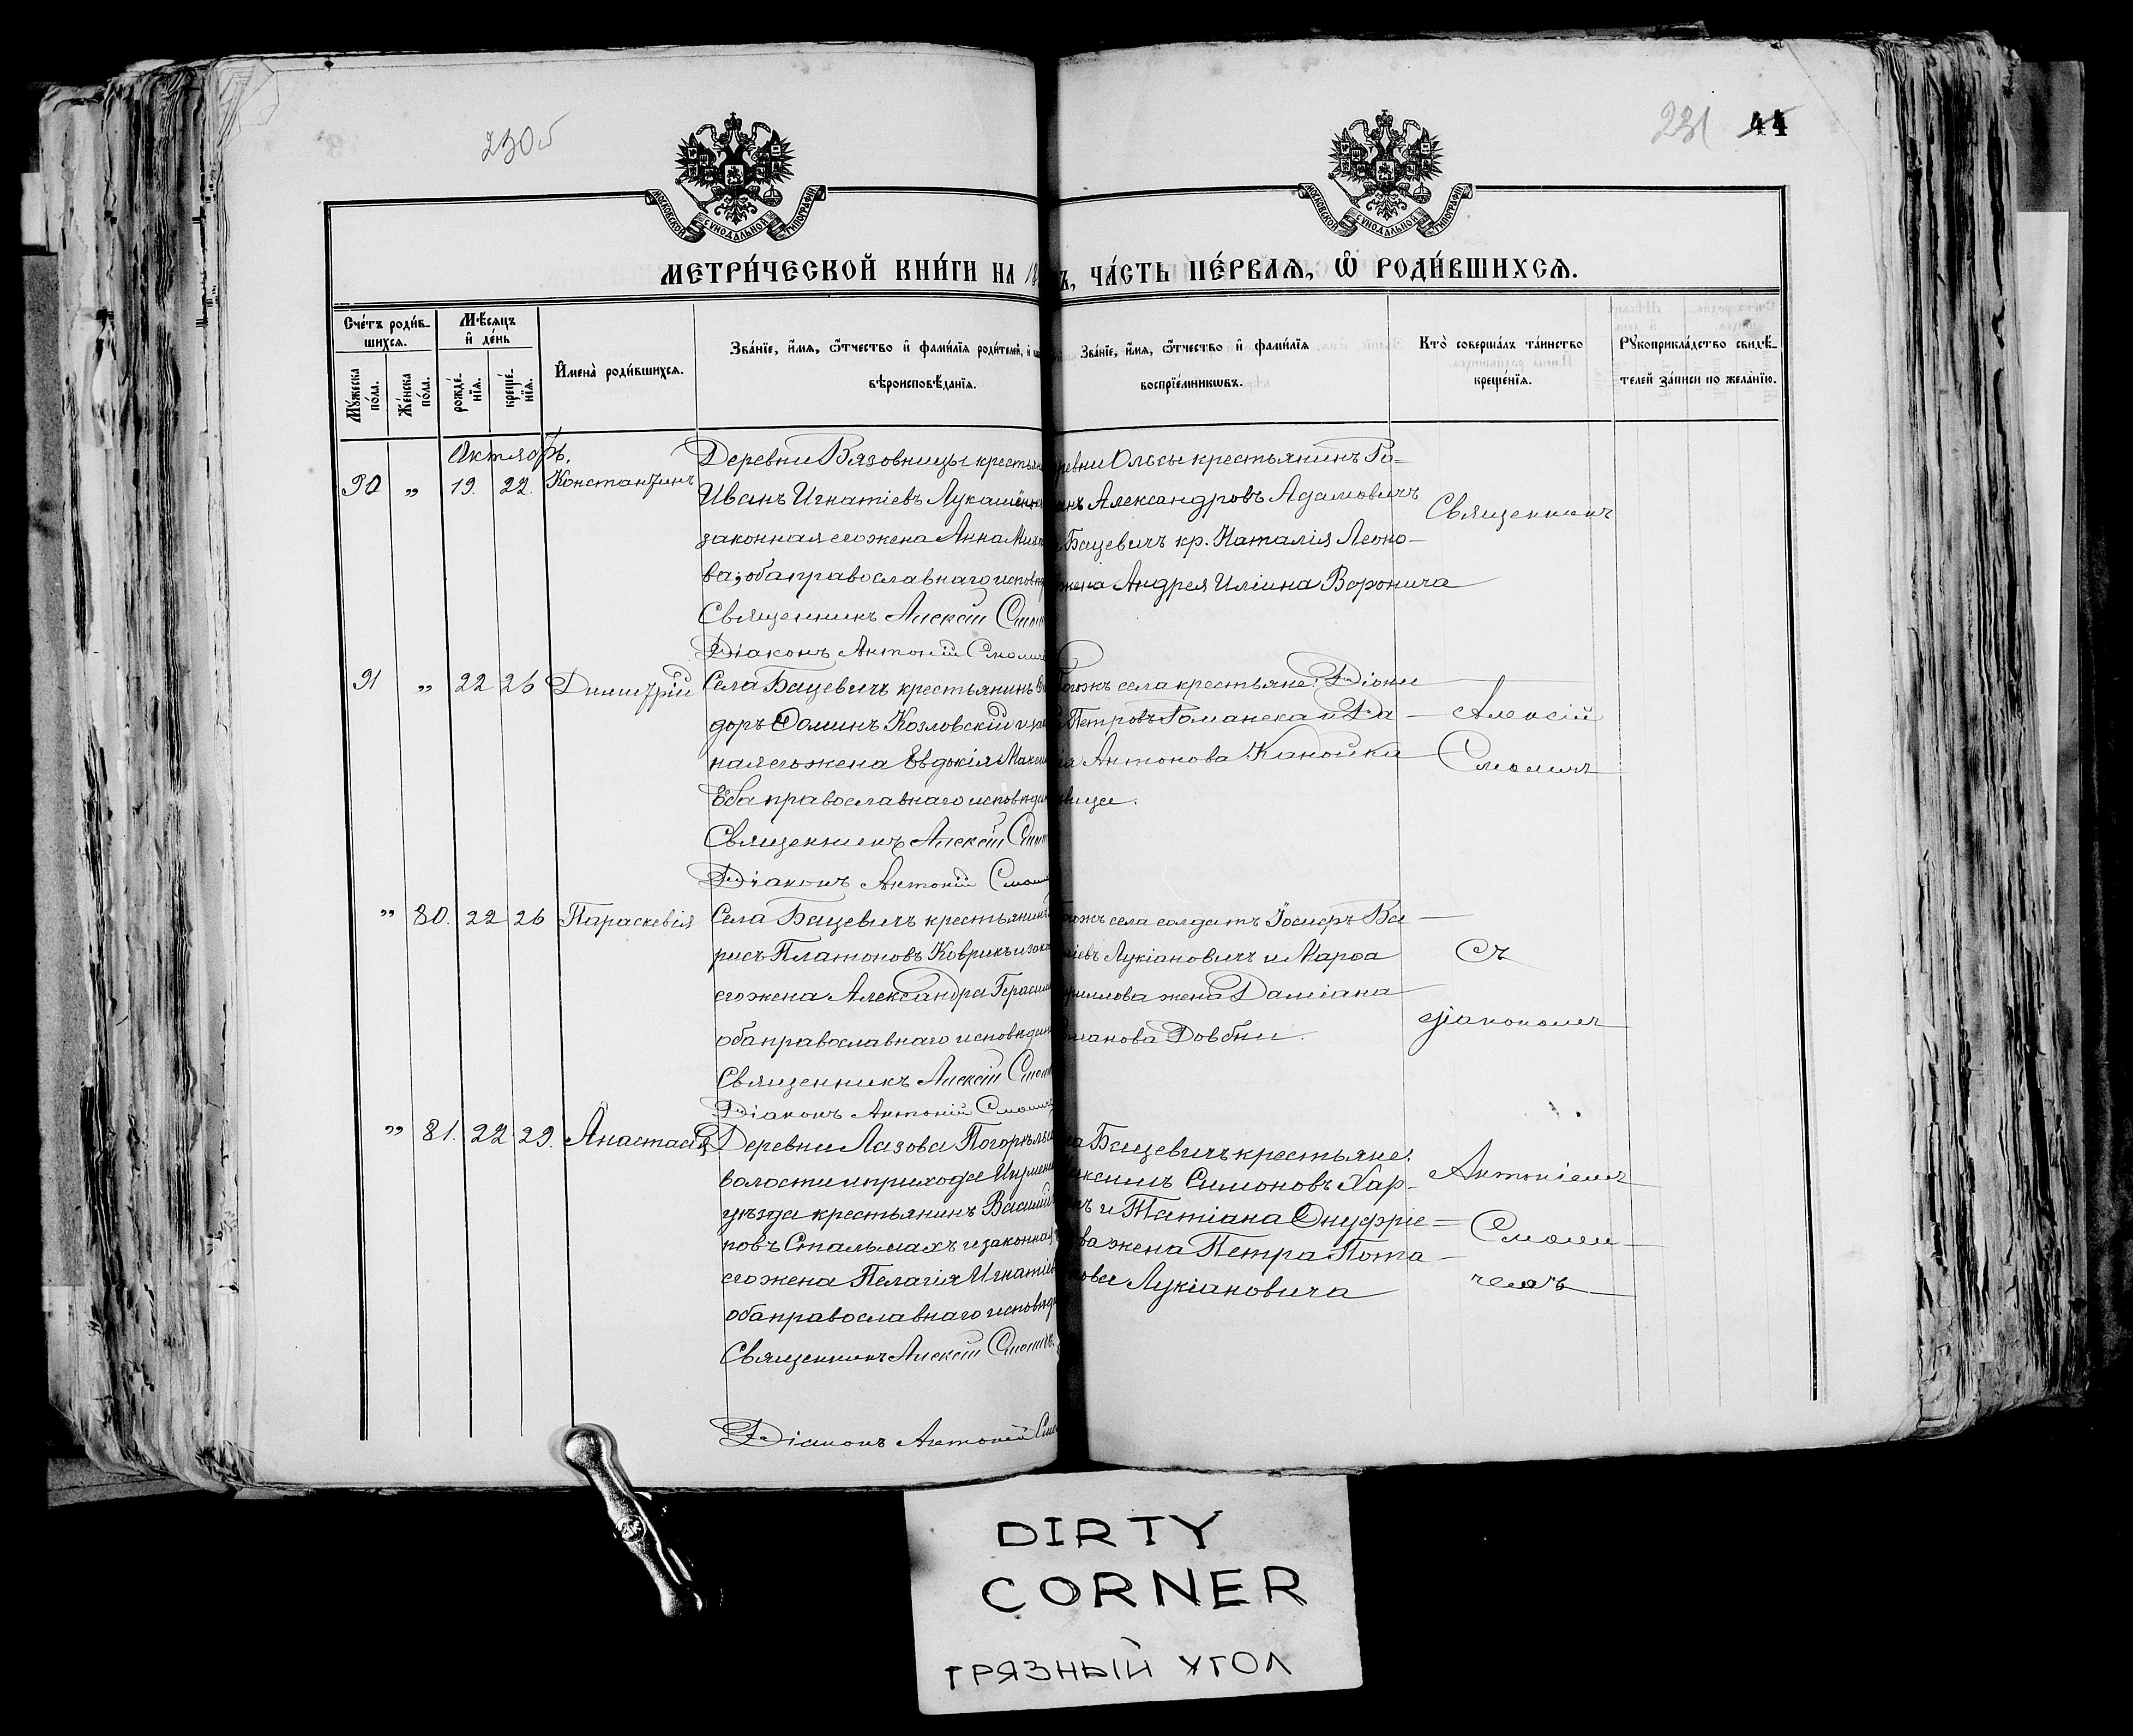 230 об
231 44
МОСКОВСКОЙ СѴНОДАЛЬНОЙ ТИПОГРАФІИ
МОСКОВСКОЙ СѴНОДАЛЬНОЙ ТИПОГРАФІИ
МЕТРИ́ЧЕСКОЙ КНИ́ГИ НА 18
Ъ, ЧА́СТЬ ПЕ́РВАѦ, Ѡ РОДИ́ВШИХСѦ.
Сче́тъ роди́в-
шихсѧ.
Мѣ́сѧцъ
и҆ де́нь
Мꙋ́жеска
по́ла.
Же́нска
по́ла.
рожде́-
нїѧ.
креще́-
нїѧ.
И҆мена̀ роди́вшихсѧ.
Зва́нїе, и҆́мѧ, ѻ҆́тчество и҆ фами́лїѧ роди́телей, и҆
вѣроисповѣ́данїѧ.
Зва́нїе, и҆́мѧ, ѻ҆́тчество и҆ фами́лїѧ
воспрїе́мникѡвъ.
Кто̀ соверша́лъ та́инство
креще́нїѧ.
Рꙋкоприкла́дство свидѣ́-
телей за́писи по жела́нїю.
Октябрь.
90 „ 19. 22. Константинъ
Деревни Вязовницы крестьян
Иванъ Игнатіевъ Лукашён
законная его жена Анна Ми
ва; оба православнаго исповѣд
Священникъ Алексій Смол
Діаконъ Антоній Смолич
ревни Ольсы крестьянинъ Ро-
анъ Александровъ Адамовичъ
Бацевичъ кр. Наталія Леоно-
жена Андрея Иліина Воронича
91 „ 22 26 Димитрій
Села Бацевичъ крестьянинъ
доръ Ѳоминъ Козловскій и зак
ная его жена Евдокія Макси
Оба православнаго исповѣдан
Священникъ Алексій Смол
Діаконъ Антоній Смоли
гожъ села крестьяне: Діони
Петровъ Романека и Да
ія Антонова Канойка
вица.
„ 80. 22 26 Параскевія
Села Бацевичъ крестьянинъ
рисъ Платоновъ Коврикъ и зак
его жена Александра Герасим
оба православнаго исповѣдан
Священникъ Алексій Смол
Діаконъ Антоній Смолич
гожъ села солдатъ Іосифъ Ва
ліевъ Лукіановичъ и Марѳа
риллова жена Даміана
манова Довбни.
„ 81. 22 29. Анастасія
Деревни Лазова Погорѣльс
волости и прихода Игумен
уѣзда крестьянинъ Василій
повъ Стальмахъ и законная
его жена Пелагія Игнатіев
оба православнаго исповѣд
Священникъ Алексій Смоличъ
Діаконъ Антоній Смо
ла Бацевичъ крестьяне:
аксимъ Симоновъ Хар-
ъ и Татіана Онуфріе-
ва жена Петра Пота-
пова Лукіановича
Священникъ
Алексій
Смоличъ
Съ
діакономъ
Антоніемъ
Смоли-
чемъ
DIRTY
CORNER
ГРЯЗНЫЙ УГОЛ